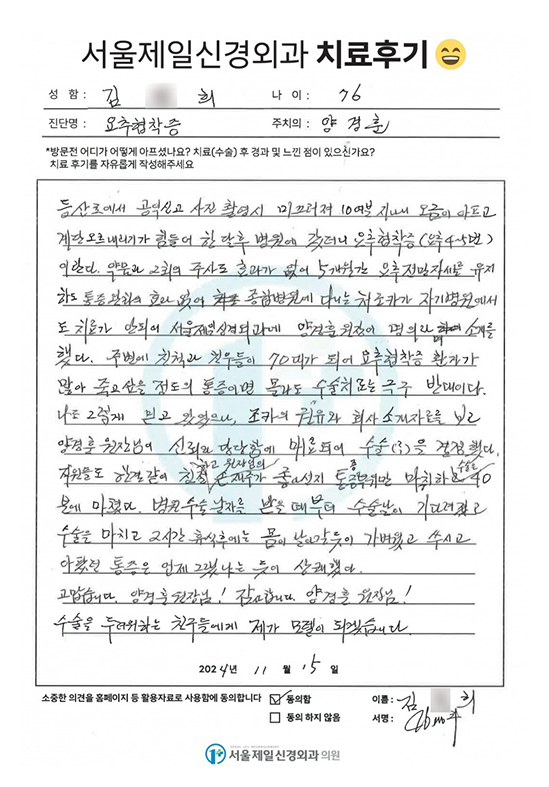 서울제일신경외과 치료후기
성 함 : 김 희 나 이 : 76
진단명 : 요추협착증 주치의 : 양 경 훈
*방문전 어디가 어떻게 아프셨나요? 치료(수술) 후 경과 및 느낀 점이 있으신가요?
치료 후기를 자유롭게 작성해주세요
등산로에서 공익신고 사진 촬영시 미끄러져 10여분 지나니 오금이 아프고
계단오르내리기가 힘들어 한 달후 병원에 갔더니 요추협착증(요추4~5번)
이란다. 약물과 2회의 주사도 효과가 없어 5개월간 요추전만자세를 유지
하도 통증완화의 효과 없어 종합병원에 다니는 처조카가 자기병원에서
도 치료가 안되어 서울제일신경외과에 양경훈원장이 명의라며 소개를
했다. 주변에 친척과 친우들이 70대가 되어 요추협착증 환자가
많아 죽고싶을 정도의 통증이면 몰라도 수술치료는 극구 반대이다.
나도 그렇게 믿고 있었으나, 조카의 권유와 회사 소개자료를 보고
양경훈 원장님이 신뢰와 당당함에 매료되어 수술(?)을 결정했다.
직원들도 한결같이 친절하고 원장님의 손재주가 좋으신지 통증부위만 마취하고 수술은 40
분에 마쳤다. 병원수술날자를 받을 때부터 수술날이 기다려졌고
수술을 마치고 2시간 휴식후에는 몸이 날아갈듯이 가벼웠고 쑤시고
아팠던 통증은 언제 그랬냐는 듯이 상쾌했다.
고맙습니다. 양경훈원장님! 감사합니다. 양경훈 원장님!
수술을 두려워하는 친구들에게 제가 모델이 되겠습니다.
2024년 11 월 15 일
소중한 의견을 홈페이지 등 활용자료로 사용함에 동의합니다 동의함 이름 : 김 희
동의 하지 않음 서명 :
서울제일신경외과의원